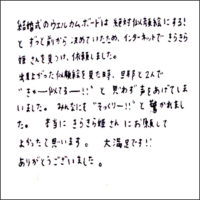 結婚式のウェルカムボードは絶対似顔絵にする!
とずっと前から決めていたため、インターネットできらきら
姫さんを見つけ、依頼しました。
出来上がった似顔絵を見た時、旦那と2人で
"きゃー似てるー!!"と思わず声をあげてしま
いました。みんなにも"そっくりー!!"と驚かれまし
た。本当にきらきら姫さんにお願いして
よかったと思います。大満足です!!
ありがとうございました。